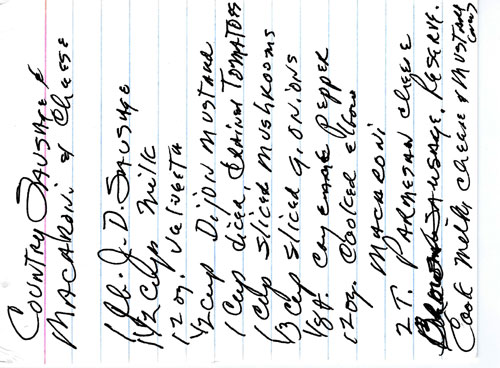 Country Sausage &
Macaroni & Cheese
1 lb. J. D. Sausage
1 1/2 cups milk
12 oz. Velveeta
1/2 cup Dijon mustard
1 cup diced, drained tomatoes
1 cup sliced mushrooms
1/3 cup sliced g. onions
1/8 t. cayenne pepper
12 oz. cooked elbow
macaroni
2 T. Parmesan cheese
Brown sausage. Reserve.
Cook milk, cheese & mustard